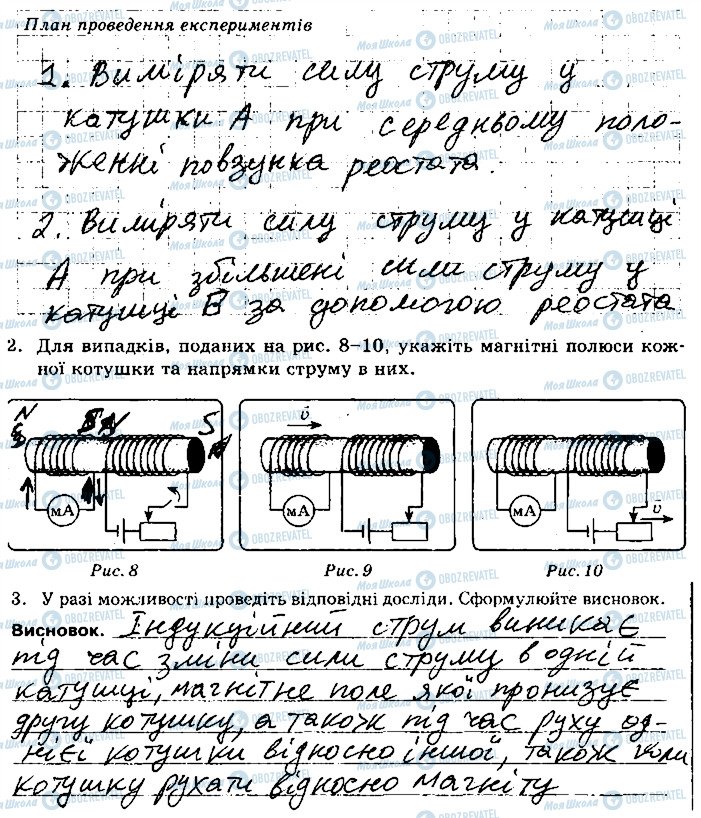 План проведення експериментів
1. Виміряти силу струму у
катушки А при середньому поло-
женні повзунка реостата.
2. Виміряти силу струму у катушці
А при збільшені сили струму у
катушці В за допомогою реостата
2. Для випадків, поданих на рис. 8–10, укажіть магнітні полюси кож-
ної котушки та напрямки струму в них.
N S N S
мА
Рис. 8
v
мА
Рис. 9
мА
v
Рис. 10
3. У разі можливості проведіть відповідні досліди. Сформулюйте висновок.
Висновок. Індукційний струм виникає
під час зміни сили струму в одній
катушці, магнітне поле якої пронизує
другу котушку, а також під час руху од-
нієї котушки відносно іншої, також коли
котушку рухати відносно магніту
МояШкола OBOZREVATEL